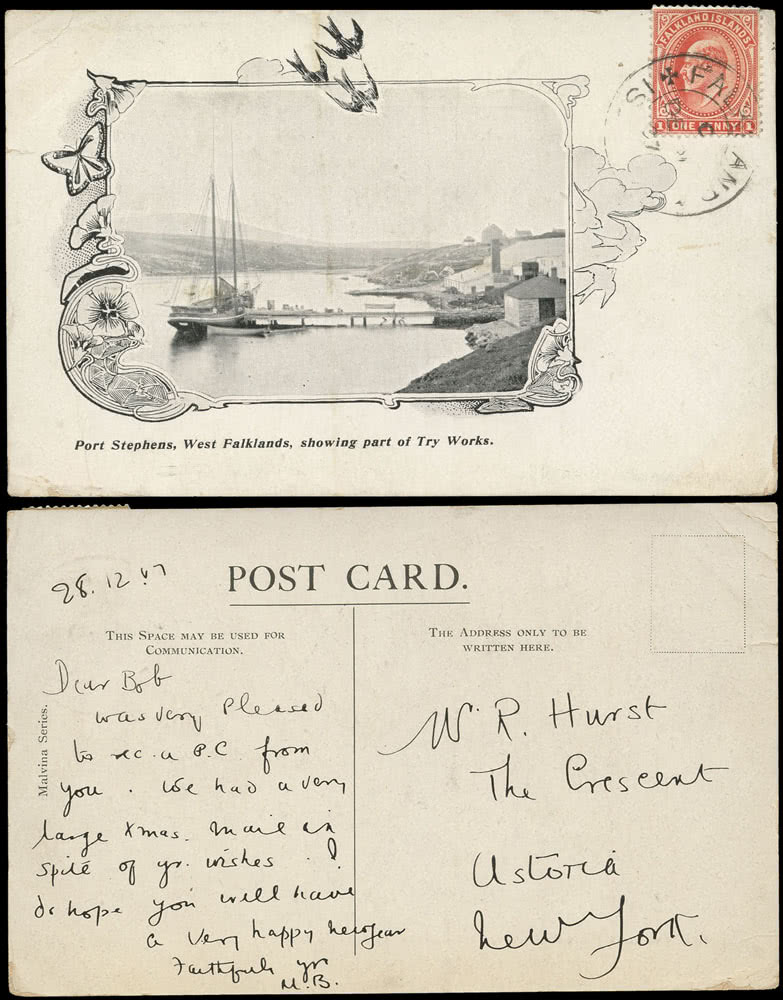 FALKLAND ISLANDS
1 ONE PENNY 1
FALKLAND ISL
Port Stephens, West Falklands, showing part of Try Works.
28.12.07
POST CARD.
THIS SPACE MAY BE USED FOR
COMMUNICATION.
THE ADDRESS ONLY TO BE
WRITTEN HERE.
Malvina Series.
Dear Bob
was very Pleased
to rec. a P.C from
you. We had a very
large Xmas. mail in
spite of yr. wishes. I
do hope you will have
a very happy New Year
Faithfully yr
M.B.
R. Hurst
The Crescent
Astoria
New York.